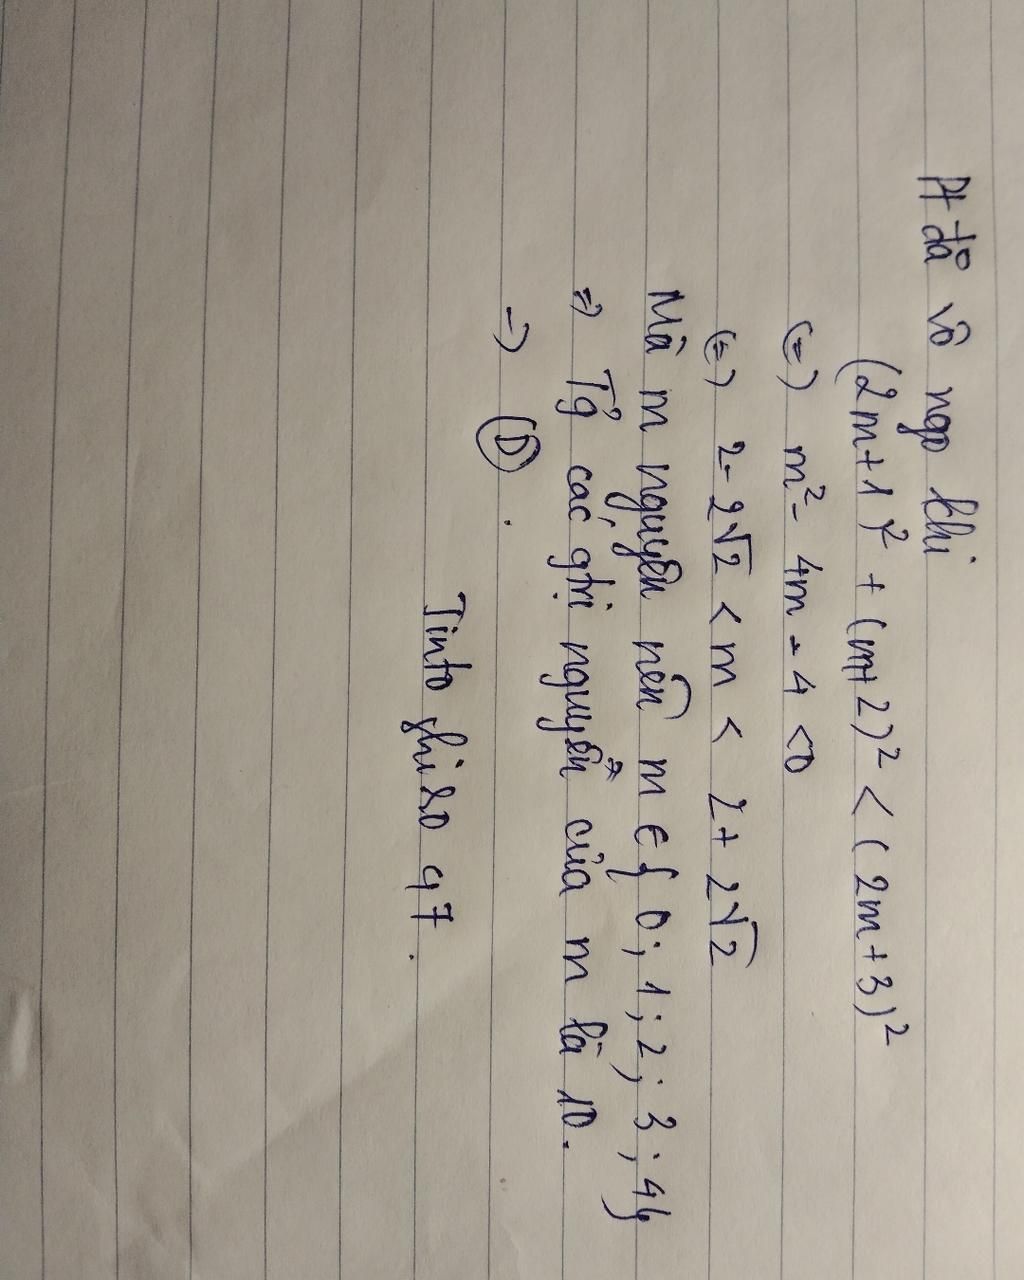 Pt đã vô ngo khi
(2m+1)² + (m+2)² < (2m+3)²
(=) m² - 4m - 4 < 0
(=) 2 - 2√2 < m < 2 + 2√2
Mà m nguyên nên m ∈ { 0 ; 1 ; 2 ; 3 ; 4}
=) Tg các gtri nguyên của m là 10.
-) (D) .
Tinto ghi so 97 .